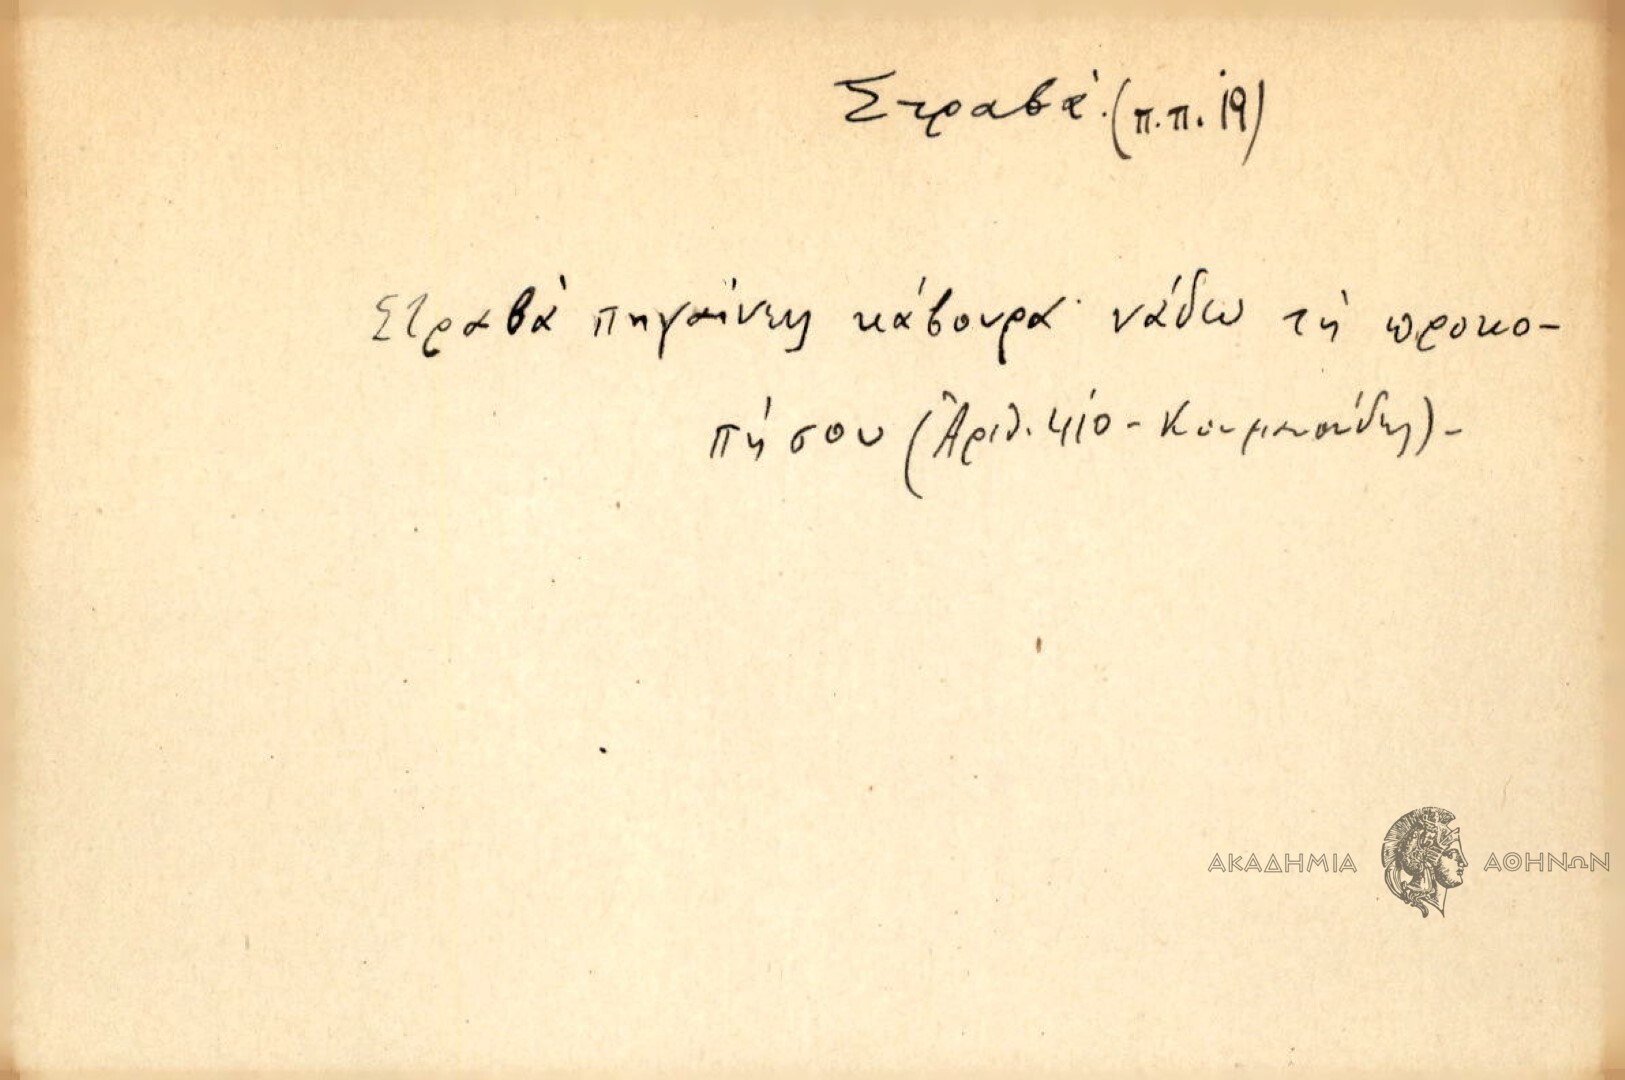 Στραβά. (π.π. 19)
Στραβά πηγαίνεις κάβουρα νάδω τή προκο-
πή σου (Ἀριθ. 410 - Κουμανούδης) -
ΑΚΑΔΗΜΙΑ ΑΘΗΝΩΝ